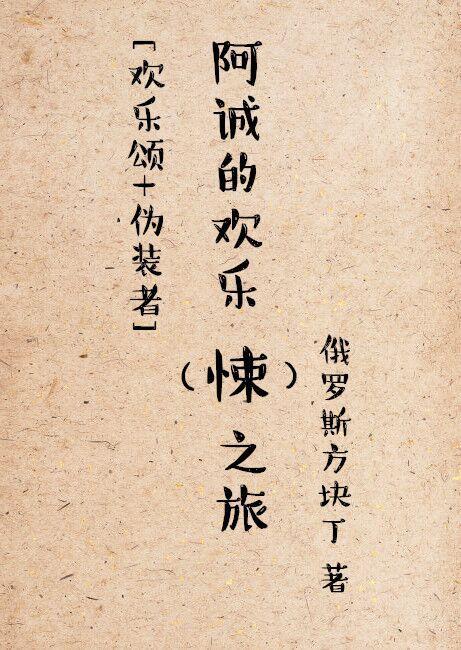 [欢乐颂+伪装者]
阿诚的欢乐（悚）之旅
俄罗斯方块丁 著